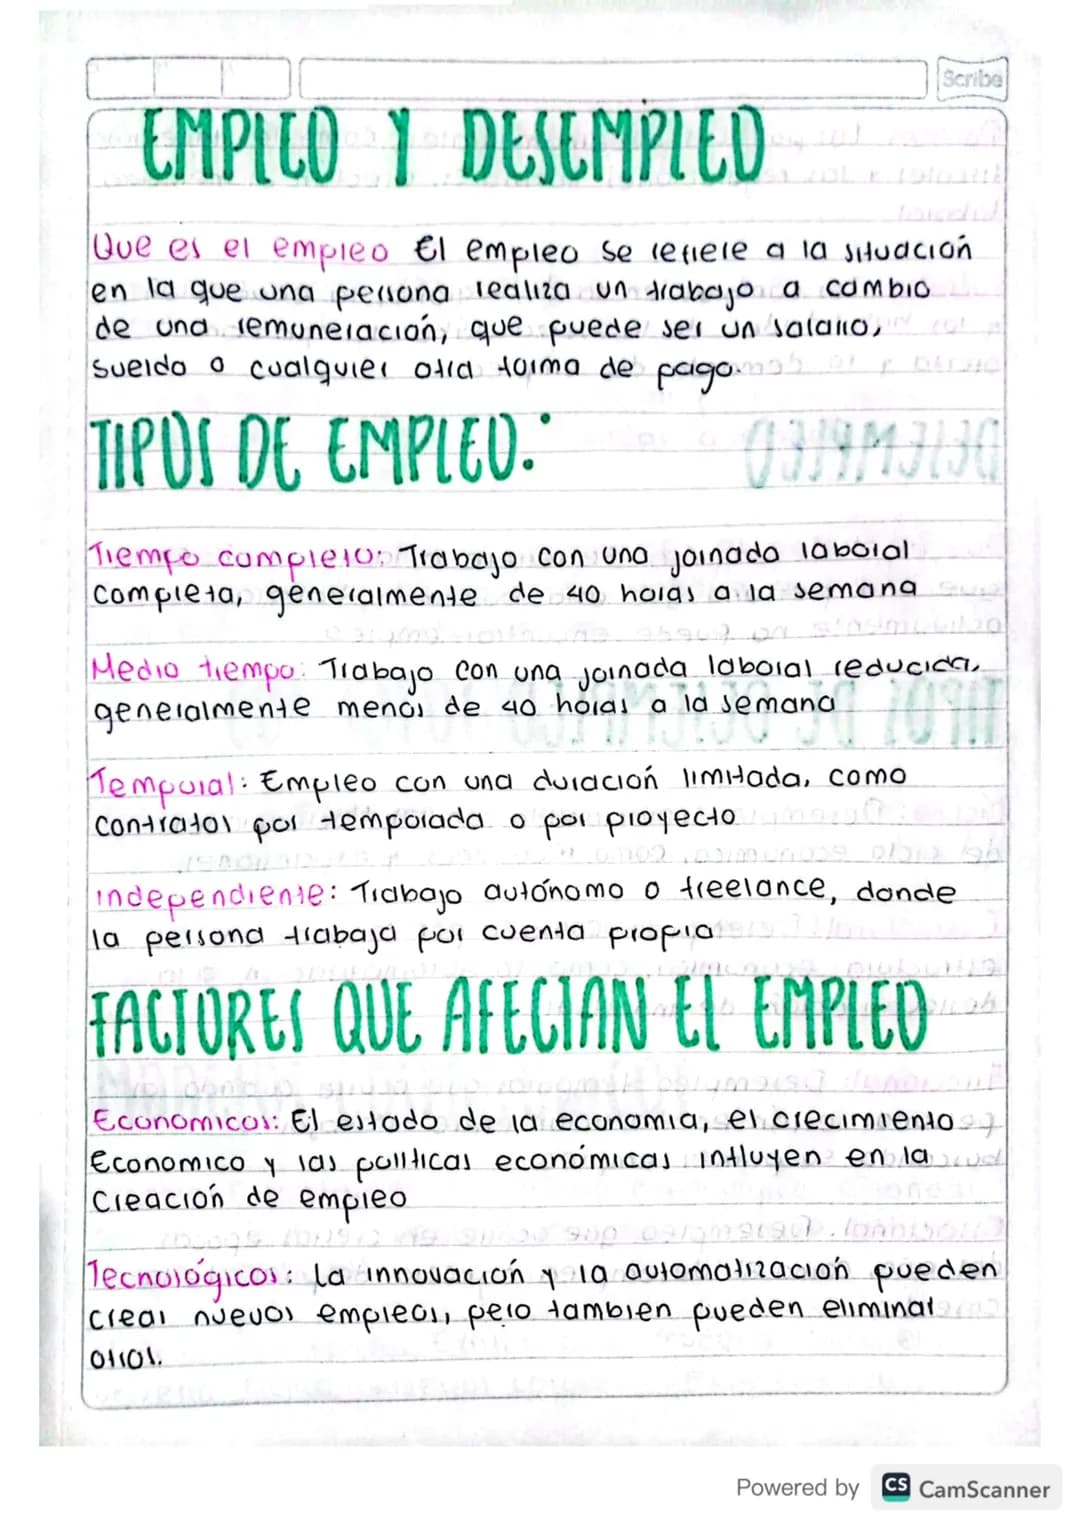 Scribe
EMPLEO Y DESEMPLEO
Que es el empleo El empleo se refiere a la situación
en la que una persona realiza un trabajo a cambio
de una remuneración, que puede ser un salario,
sueldo o cualquier otra forma de pago.
TIPOS DE EMPLEO:
Tiempo completo: Trabajo con una jornada laboral
completa, generalmente de 40 horas a la semana
Medio tiempo: Trabajo con una jornada laboral reducida,
generalmente menos de 40 horas a la semana
Temporal: Empleo con una duración limitada, como
contratos por temporada o por proyecto
Independiente: Trabajo autónomo o freelance, donde
la persona trabaja por cuenta propia
FACTORES QUE AFECTAN EL EMPLEO
Economicos: El estado de la economia, el crecimiento
Economico y las politicas económicas influyen en la
Creación de empleo
Tecnológicos: La innovación y la automatización pueden
crear nuevos empleos, pero tambien pueden eliminar
otros.
Powered by CS CamScanner